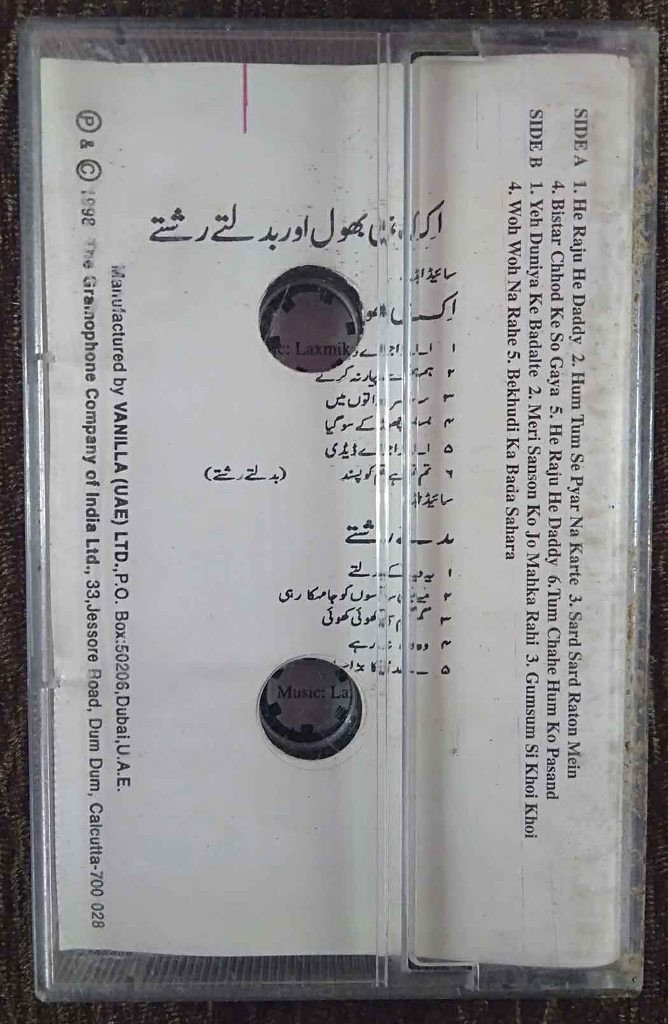 SIDE A 1. He Raju He Daddy 2. Hum Tum Se Pyar Na Karte 3. Sard Sard Raton Mein
4. Bistar Chhod Ke So Gaya 5. He Raju He Daddy 6.Tum Chahe Hum Ko Pasand
SIDE B 1. Yeh Duniya Ke Badalte 2. Meri Sanson Ko Jo Mahka Rahi 3. Gumsum Si Khoi Khoi
4. Woh Woh Na Rahe 5. Bekhudi Ka Bada Sahara
بھول اور بدلتے رشتے
سائیڈ
۱
۲ پیار نہ کرتے
۳ راتوں میں
۴ کے سو گیا
۵ ڈیڈی
۶ کو پسند (بدلتے رشتے)
سائیڈ
رشتے
۱
۲ کو جو مہکا رہی
۳ کھوئی کھوئی
۴ رہے
۵
: Laxmik
Music: La
Manufactured by VANILLA (UAE) LTD.,P.O. Box:50206,Dubai,U.A.E.
Ⓟ & © 1998 The Gramophone Company of India Ltd., 33,Jessore Road, Dum Dum, Calcutta-700 028